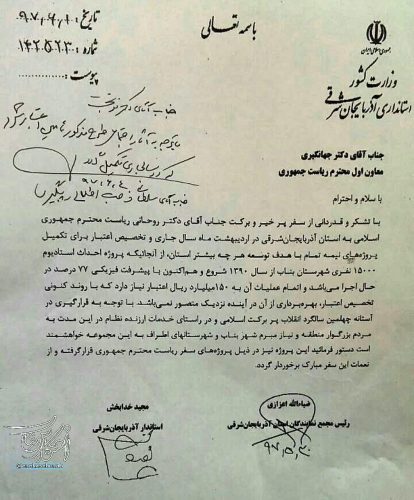 باسمه تعالی
جمهوری اسلامی ایران
وزارت کشور
استانداری آذربایجان شرقی
تاریخ :
شماره :
پیوست :
جناب آقای دکتر
با توجه به آثار اجتماعی طرح مذکور تامین اعتبار
جناب آقای دکتر جهانگیری
معاون اول محترم ریاست جمهوری
با سلام و احترام
با تشکر و قدردانی از سفر پر خیر و برکت جناب آقای دکتر روحانی ریاست محترم جمهوری
اسلامی به استان آذربایجان‌شرقی در اردیبهشت ماه سال جاری و تخصیص اعتبار برای تکمیل
پروژه‌های نیمه تمام با هدف توسعه هر چه بیشتر استان، از آنجائیکه پروژه احداث استادیوم
۱۵۰۰۰ نفری شهرستان بناب از سال ۱۳۹۰ شروع و هم‌اکنون با پیشرفت فیزیکی ۷۷ درصد در
حال اجرا می‌باشد و اتمام عملیات آن به ۱۵۰میلیارد ریال اعتبار نیاز دارد که با روند کنونی
تخصیص اعتبار، بهره‌برداری از آن در آینده نزدیک متصور نمی‌باشد. با توجه به قرارگیری در
آستانه چهلمین سالگرد انقلاب پر برکت اسلامی و در راستای خدمات ارزنده نظام در این مدت به
مردم بزرگوار منطقه و نیاز مبرم شهر بناب و شهرستانهای اطراف به این مجموعه خواهشمند
است دستور فرمائید این پروژه نیز در ذیل پروژه‌های سفر ریاست محترم جمهوری قرارگرفته و از
نعمات این سفر مبارک برخوردار گردد.
ضیاءالله اعزازی
رئیس مجمع نمایندگان استان آذربایجان‌شرقی
مجید خدابخش
استاندار آذربایجان‌شرقی